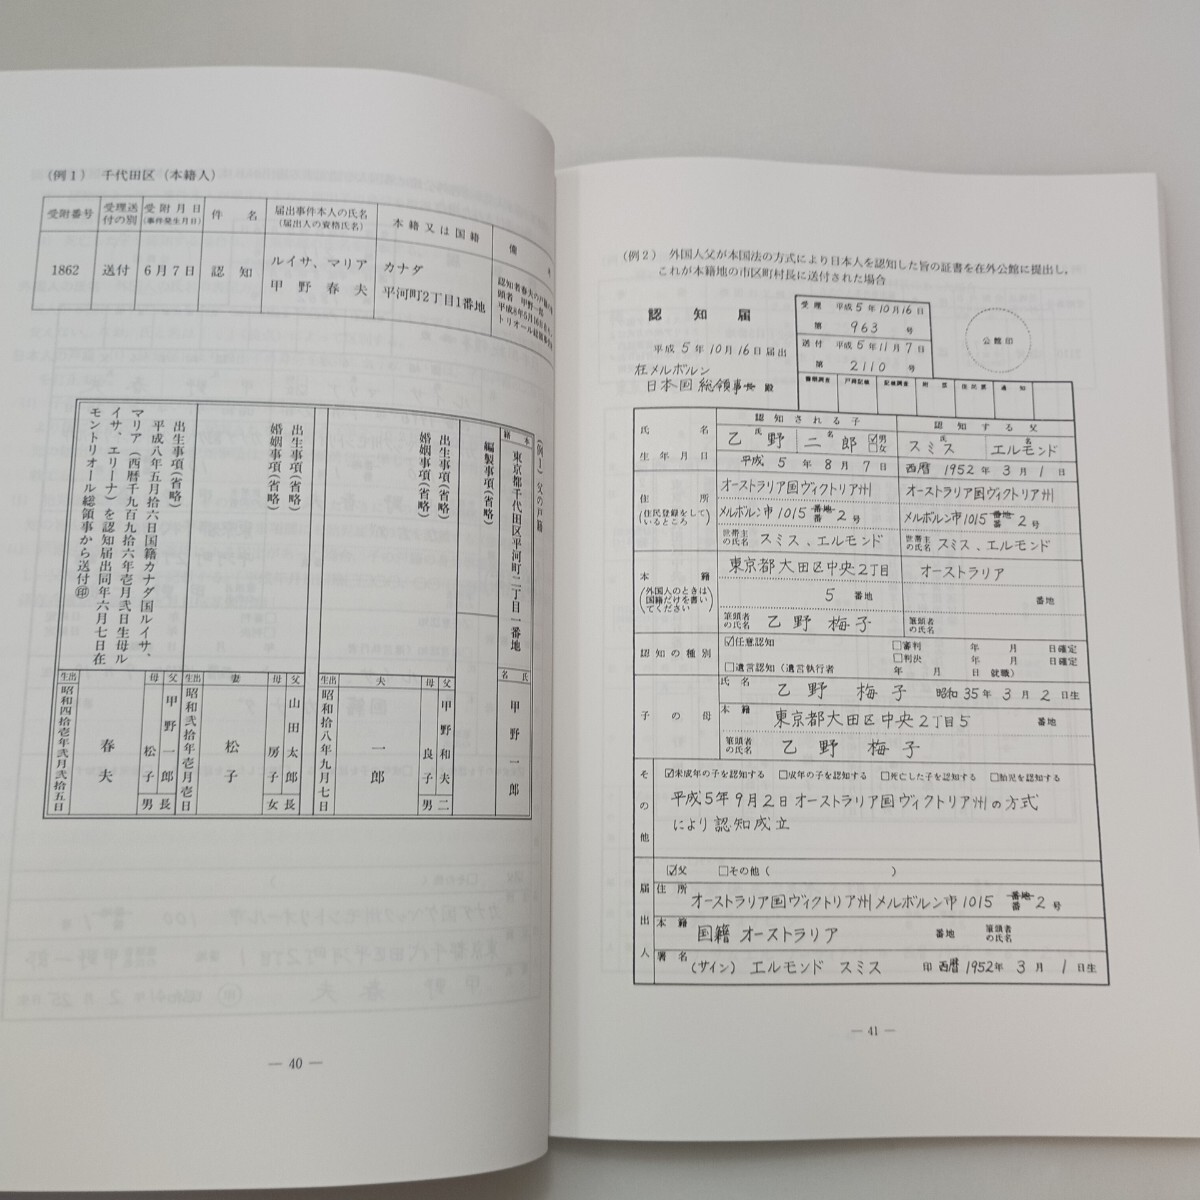 (例1) 千代田区(本籍人)
受附番号 受理送付の別 受附月日(事件発生月日) 件名 届出事件本人の氏名(届出人の資格氏名) 本籍又は国籍 備
1862 送付 6月7日 認知 ルイサ、マリア カナダ
甲野春夫 平河町2丁目1番地
(例1) 父の戸籍
本籍 東京都千代田区平河町二丁目一番地
氏名 甲野一郎
編製事項(省略)
出生事項(省略)
婚姻事項(省略)
父 甲野和夫
母 良子
二男
夫 一郎
出生 昭和拾八年九月七日
出生事項(省略)
婚姻事項(省略)
父 山田太郎
母 房子
長女
妻 松子
出生 昭和弐拾年壱月壱日
出生事項(省略)
平成八年五月拾六日国籍カナダ国ルイサ、
マリア(西暦千九百九拾六年壱月弐日生母ル
イサ、エリーナ)を認知届出同年六月七日在
モントリオール総領事から送付㊞
父 甲野一郎
母 松子
長男
春夫
出生 昭和四拾壱年弐月弐拾五日
― 40 ―
(例2) 外国人父が本国法の方式により日本人を認知した旨の証書を在外公館に提出し,
これが本籍地の市区町村長に送付された場合
認知届
平成5年10月16日届出
在メルボルン
日本国総領事 殿
受理 平成5年10月16日
第 963 号
送付 平成5年11月7日
第 2110 号
公館印
書類調査 戸籍記載 記載調査 附票 住民票 通知
認知される子 認知する父
氏名 氏 乙野 名 二郎 ☑男 □女 氏 スミス 名 エルモンド
生年月日 平成5年8月7日 西暦1952年3月1日
住所 オーストラリア国ヴィクトリア州 オーストラリア国ヴィクトリア州
(住民登録をしているところ) メルボルン市1015 番地 番 2号 メルボルン市1015 番地 番 2号
世帯主の氏名 スミス、エルモンド 世帯主の氏名 スミス、エルモンド
本籍 東京都大田区中央2丁目 オーストラリア
(外国人のときは国籍だけを書いてください) 5 番地 番地
筆頭者の氏名 乙野梅子 筆頭者の氏名
認知の種別 ☑任意認知 □審判 年 月 日確定
□判決 年 月 日確定
□遺言認知(遺言執行者 年 月 日 就職)
子の母 氏名 乙野 梅子 昭和35年3月2日生
本籍 東京都大田区中央2丁目5 番地
筆頭者の氏名 乙野 梅子
その他 ☑未成年の子を認知する □成年の子を認知する □死亡した子を認知する □胎児を認知する
平成5年9月2日オーストラリア国ヴィクトリア州の方式
により認知成立
届出人 ☑父 □その他( )
住所 オーストラリア国ヴィクトリア州メルボルン市1015 番地 番 2号
本籍 国籍 オーストラリア 番地 筆頭者の氏名
署名 (サイン) エルモンド スミス 印 西暦1952年3月1日生
― 41 ―